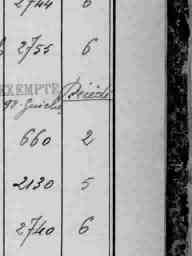 2744 6
2755 6
EXEMPTE Décédé
660 2
2130 5
2740 6